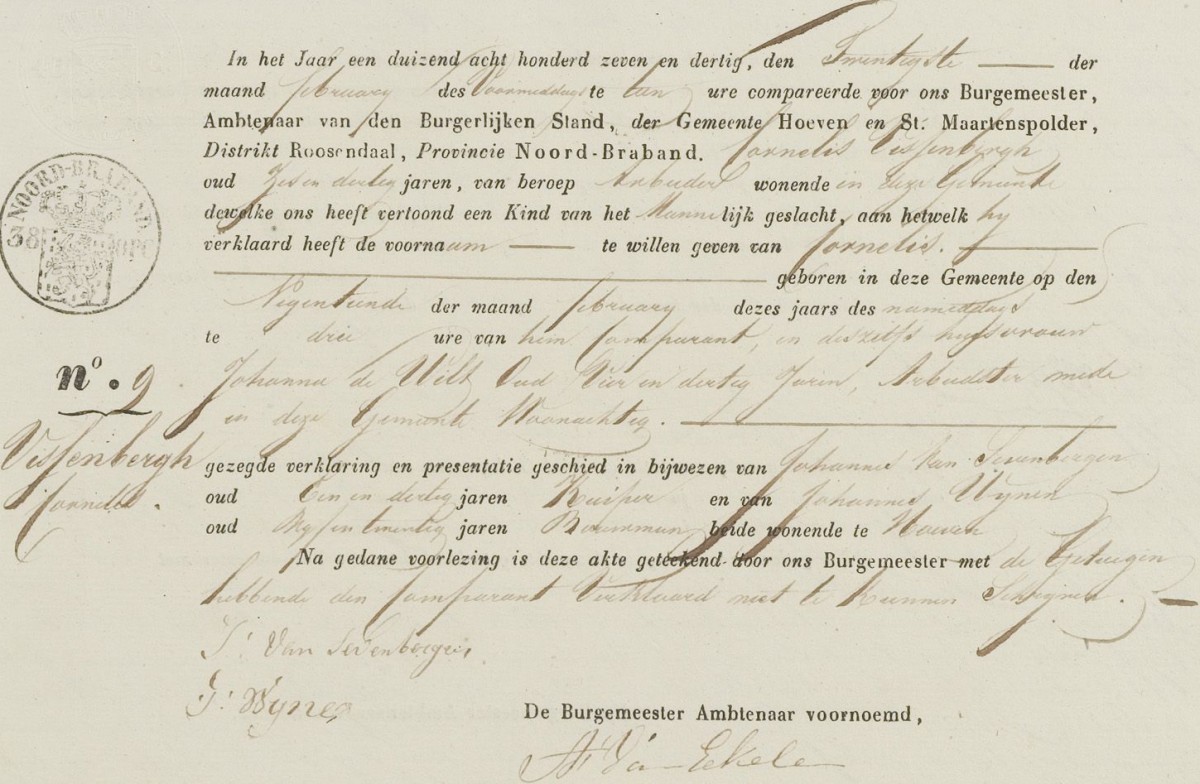 In het Jaar een duizend acht honderd zeven en dertig, den Twentigste der
maand february des Voormiddags te tien ure compareerde voor ons Burgemeester,
Ambtenaar van den Burgerlijken Stand, der Gemeente Hoeven en St. Maartenspolder,
Distrikt Roosendaal, Provincie Noord-Braband. Cornelis Vissenbergh
oud Zes en dertig jaren, van beroep Arbeider wonende in deze Gemeente
dewelke ons heeft vertoond een Kind van het Mannelijk geslacht, aan hetwelk hy
verklaard heeft de voornaam te willen geven van Cornelis.
geboren in deze Gemeente op den
Negentiende der maand february dezes jaars des namiddags
te drie ure van hem Comparant, en deszelfs huysvrouw
Johanna de Wilt Oud Vier en dertig Jaren, Arbeidster mede
in deze Gemeente Woonachtig.
gezegde verklaring en presentatie geschied in bijwezen van Johannes Van Sevenbergen
oud Een en dertig jaren Kuiper en van Johannes Wynen
oud twentig jaren Bouwman beide wonende te Hoeven
Na gedane voorlezing is deze akte geteekend door ons Burgemeester met de Getuigen
hebbende den Comparant Verklaard niet te Kunnen Schryven.
J: Van Sevenbergen
J: Wynen
De Burgemeester Ambtenaar voornoemd,
Van Eekelen
NOORD-BRABAND
38
nº. 9
Vissenbergh
Cornelis.